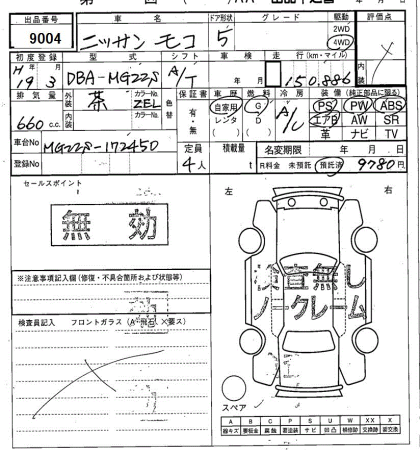 出品番号 車名 ドア形状 グレード 駆動 評価点
9004 ニッサン モコ 5 2WD 4WD
初度登録 型式 シフト 車検 走行(km・マイル) 内装
H 年 月 19 3 DBA-MG22S A/T 年 月 150,886
排気量 外装 色 カラーNo. 色替 保証書 車歴 燃料 冷房 装備(純正部品に限る)
660 c.c. 茶 ZEL 有・無 自家用 G A/C PS PW ABS
内装 カラーNo. レンタ D エアB AW SR
革 ナビ TV
車台No MG22S-172450 定員 積載量 名変期限 年 月 日
登録No 4人 t R料金 未預託 預託済 9780円
セールスポイント 左 右
無効
※注意事項記入欄(修復・不具合箇所および状態等)
検査無し
ノークレーム
検査員記入 フロントガラス(A・飛石・×要ス)
スペア
A B C P S U W X XX
線キズ 要板金 腐蝕 要塗装 サビ 凹凸 補修跡 交換跡 要交換